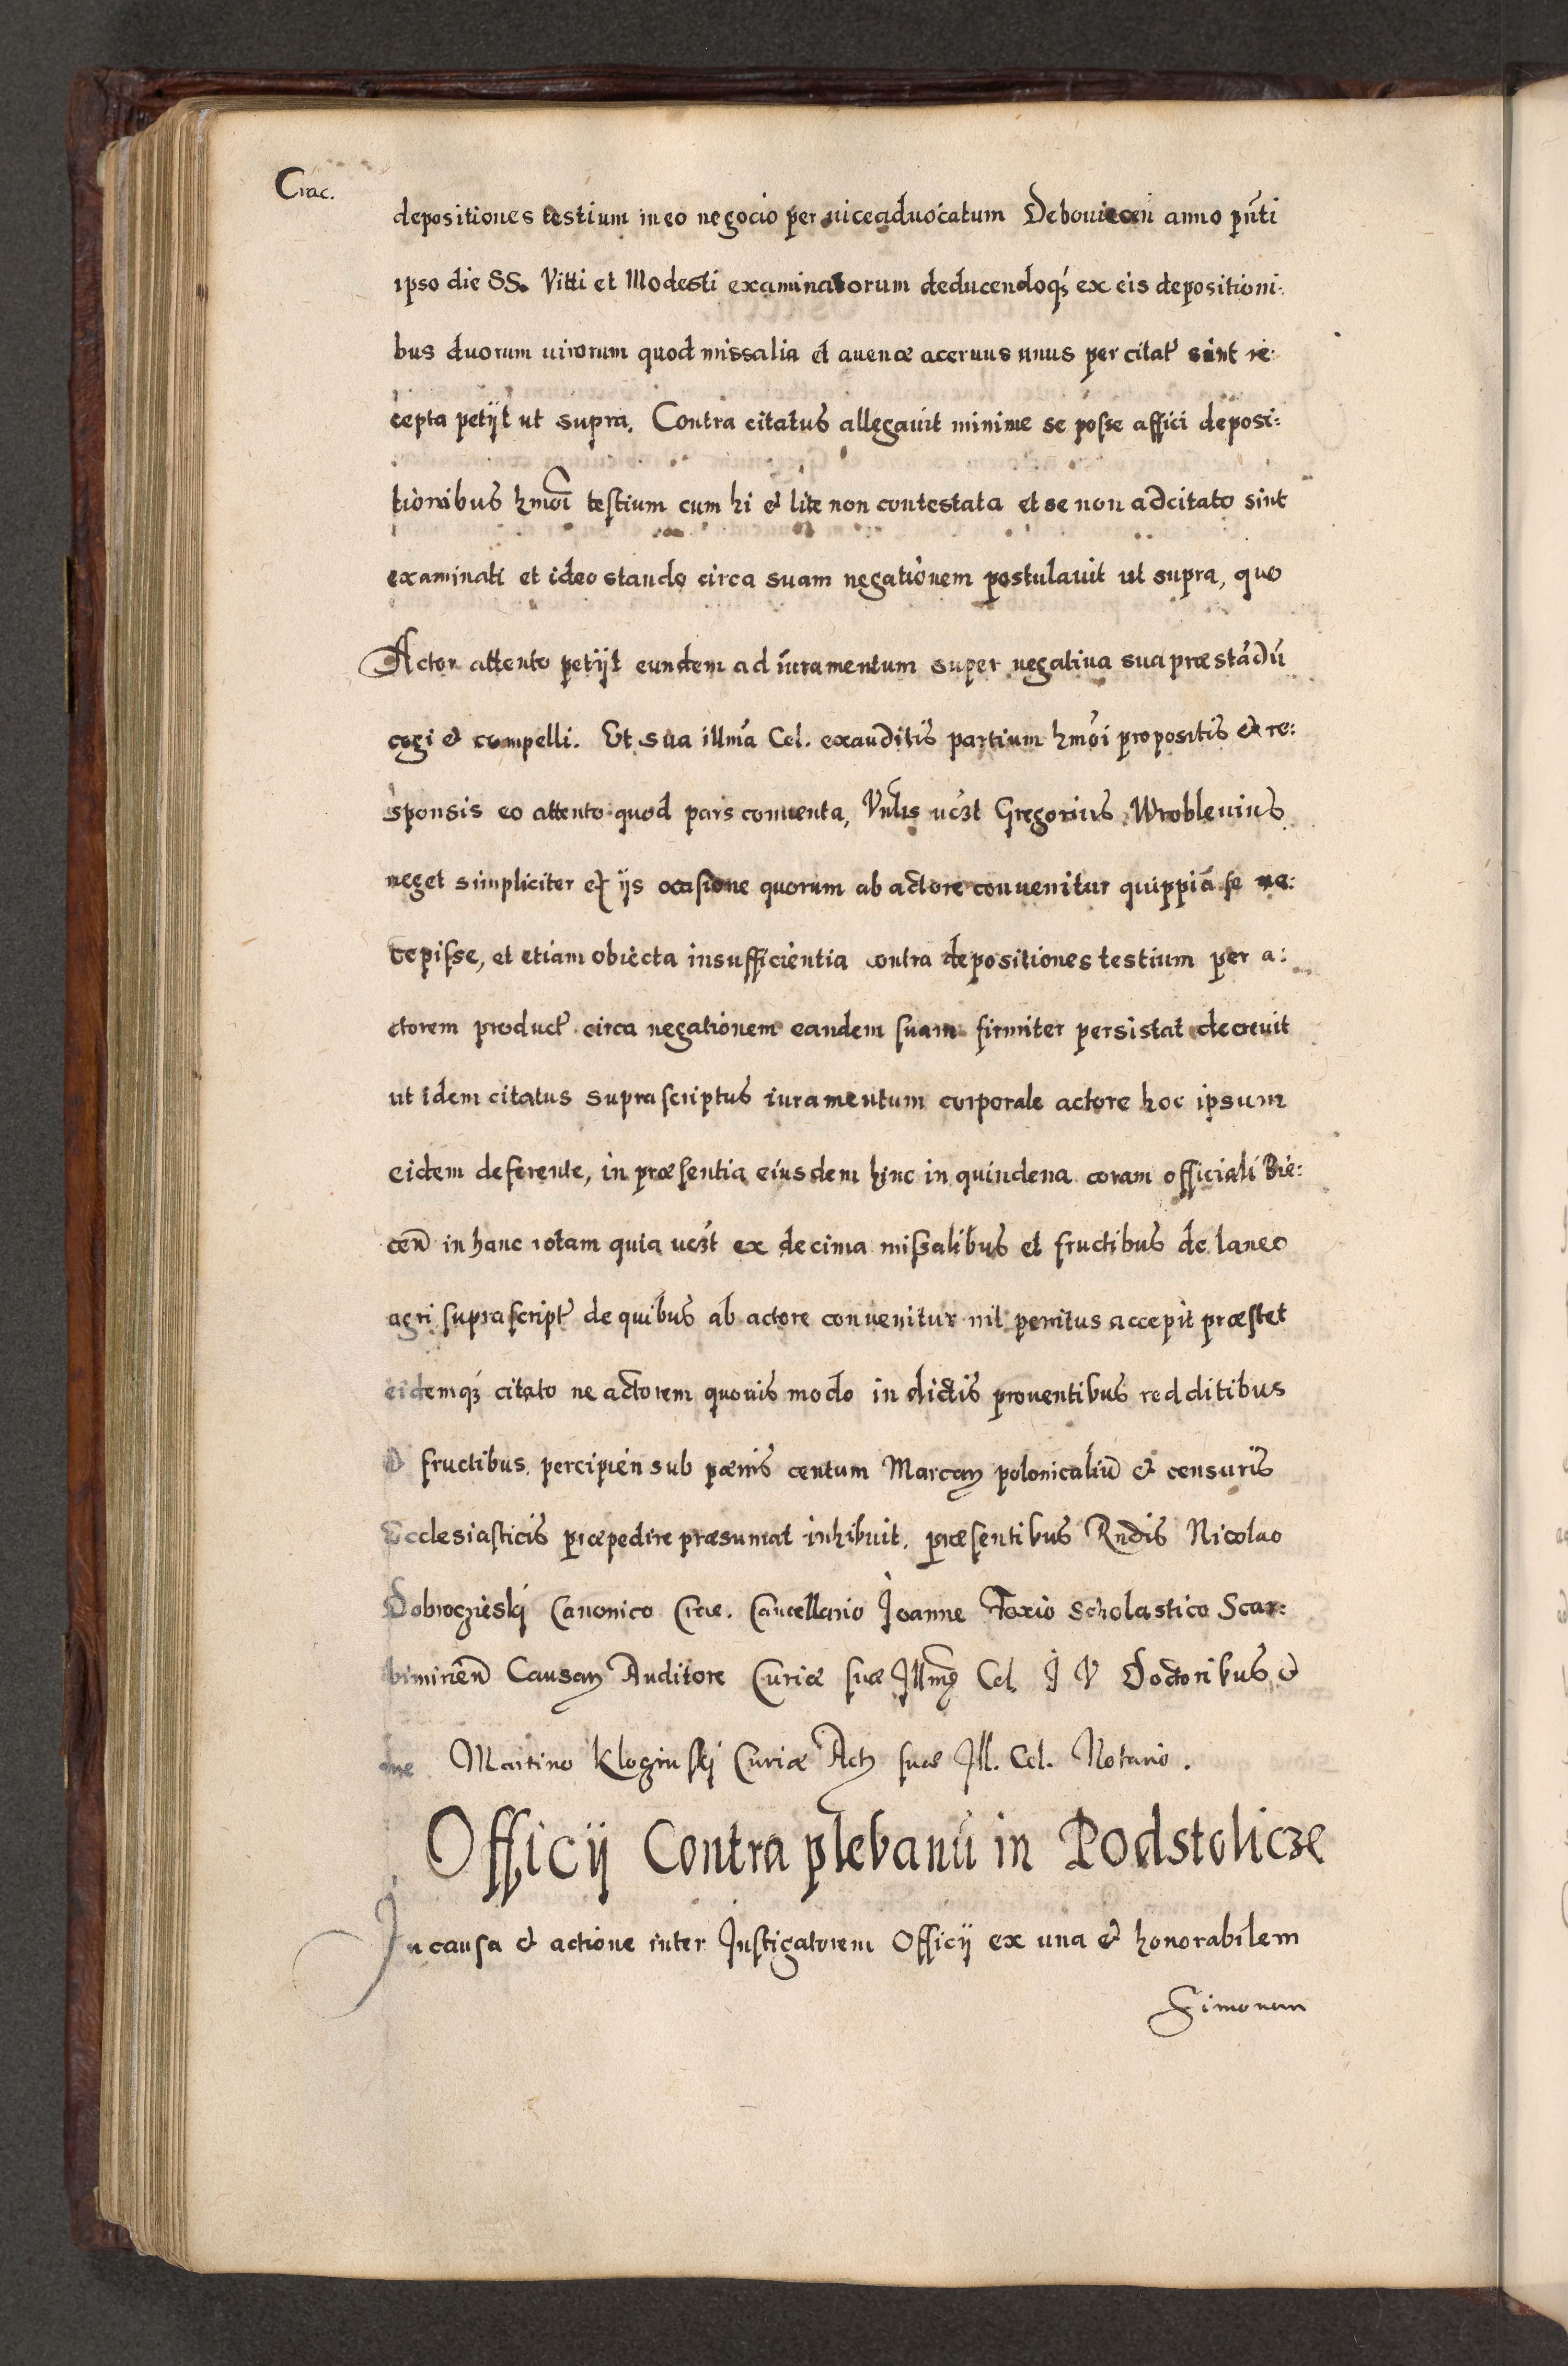 Crac.
depositiones testium in eo negocio per viceaduocatum Debouiecen̄ anno pn̄ti
ipso die SS. Vitti et Modesti examinatorum deducendoqꝫ ex eis depositioni:
bus duorum uirorum quod missalia et auenæ aceruus unus per citat̃ sint re:
cepta petijt ut supra. Contra citatus allegauit minime se posse affici deposi:
tionibus hmōi testium cum hi et lite non contestata et se non adcitato sint
examinati et ideo stando circa suam negationem postulauit ut supra, quo
Actor attento petijt eundem ad iuramentum super negatiua sua præstādū
cogi et compelli. Et sua illmā Cel. exauditis partium hmōi propositis et re:
sponsis eo attento quod pars conuenta, Vnlis uczt Gregorius Wroblevius
neget simpliciter ex ijs ocasione quorum ab actore conuenitur quippiā se
cepisse, et etiam obiecta insufficientia contra depositiones testium per a:
ctorem product̃ circa negationem eandem suam firmiter persistat decreuit
ut idem citatus suprascriptus iuramentum corporale actore hoc ipsum
eidem deferente, in præsentia eiusdem hinc in quindena coram officiali Bie:
cen̄ in hanc rotam quia uczt ex decima missalibus et fructibus de laneo
agri suprascript̃ de quibus ab actore conuenitur nil penitus accepit præstet
eidemqꝫ citato ne actorem quouis modo in dictis prouentibus redditibus
et fructibus percipien̄ sub pœnis centum Marcaꝝ polonicaliū et censuris
Ecclesiasticis præpedire præsumat inhibuit. præsentibus Rndis Nicolao
Dobroczieski Canonico Crac. Cancellario Joanne Foxio Scholastico Scar:
bimirien̄ Causaꝝ Auditore Curiæ suæ Illmæ Cel. J V Doctoribus et
me Martino Kloginskj Curiæ Actꝝ suæ Ill. Cel. Notario.
Officij Contra plebanū in Podstolicze
In causa et actione inter Instigatorem Officij ex una et honorabilem
Simonem